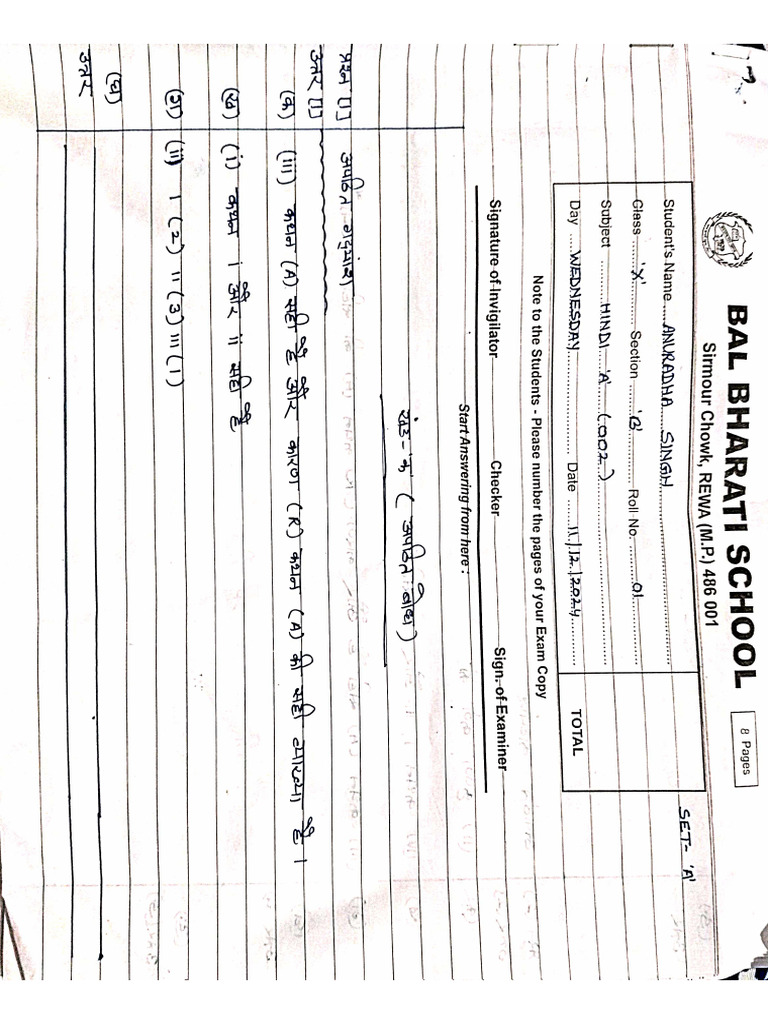 8 Pages
SET- 'A'
BAL BHARATI SCHOOL
Sirmour Chowk, REWA (M.P.) 486 001
Student's Name ANURADHA SINGH
Class 'X' Section 'B' Roll No. 01
Subject HINDI 'A' (002)
Day WEDNESDAY Date 11/12/2024
TOTAL
Note to the Students - Please number the pages of your Exam Copy
Signature of Invigilator Checker Sign. of Examiner
Start Answering from here :
खंड-'क' (अपठित बोध)
प्रश्न [1] अपठित गद्यांश
उत्तर [1]
(क) (iii) कथन (A) सही है और कारण (R) कथन (A) की सही व्याख्या है।
(ख) (i) कथन I और II सही है
(ग) (ii) I (2) II (3) III (1)
(घ)
उत्तर